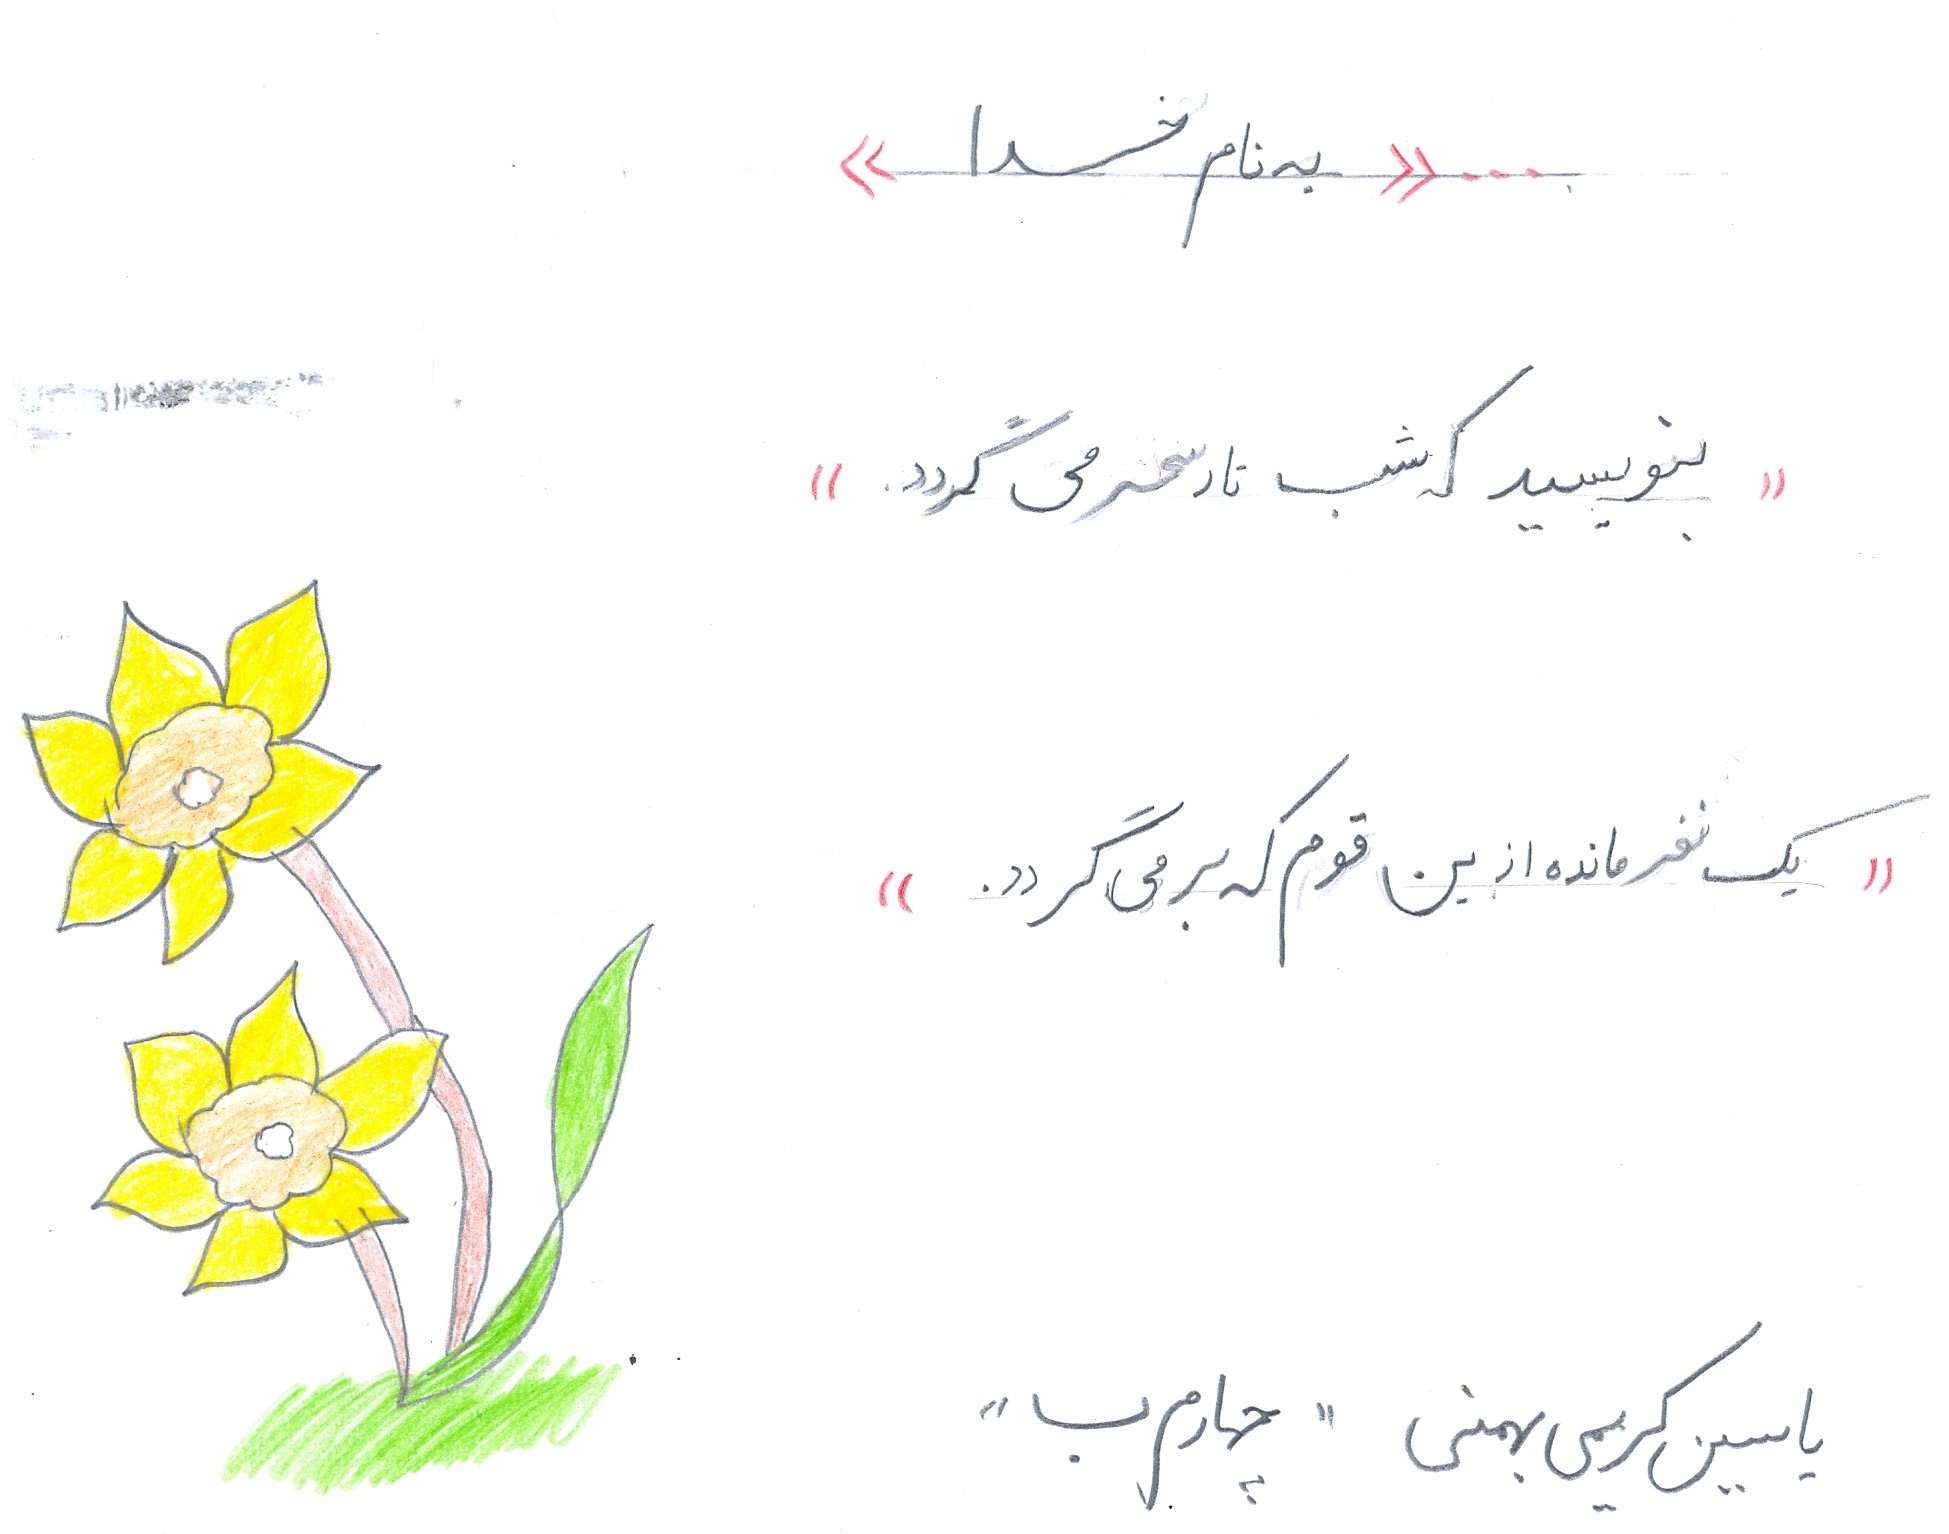 « به نام خدا » ...
« بنویسید که شب تار سحر می گردد. »
« یک نفر مانده از ین قوم که بر می گردد. »
یاسین کریمی بهمنی " چهارم ب "